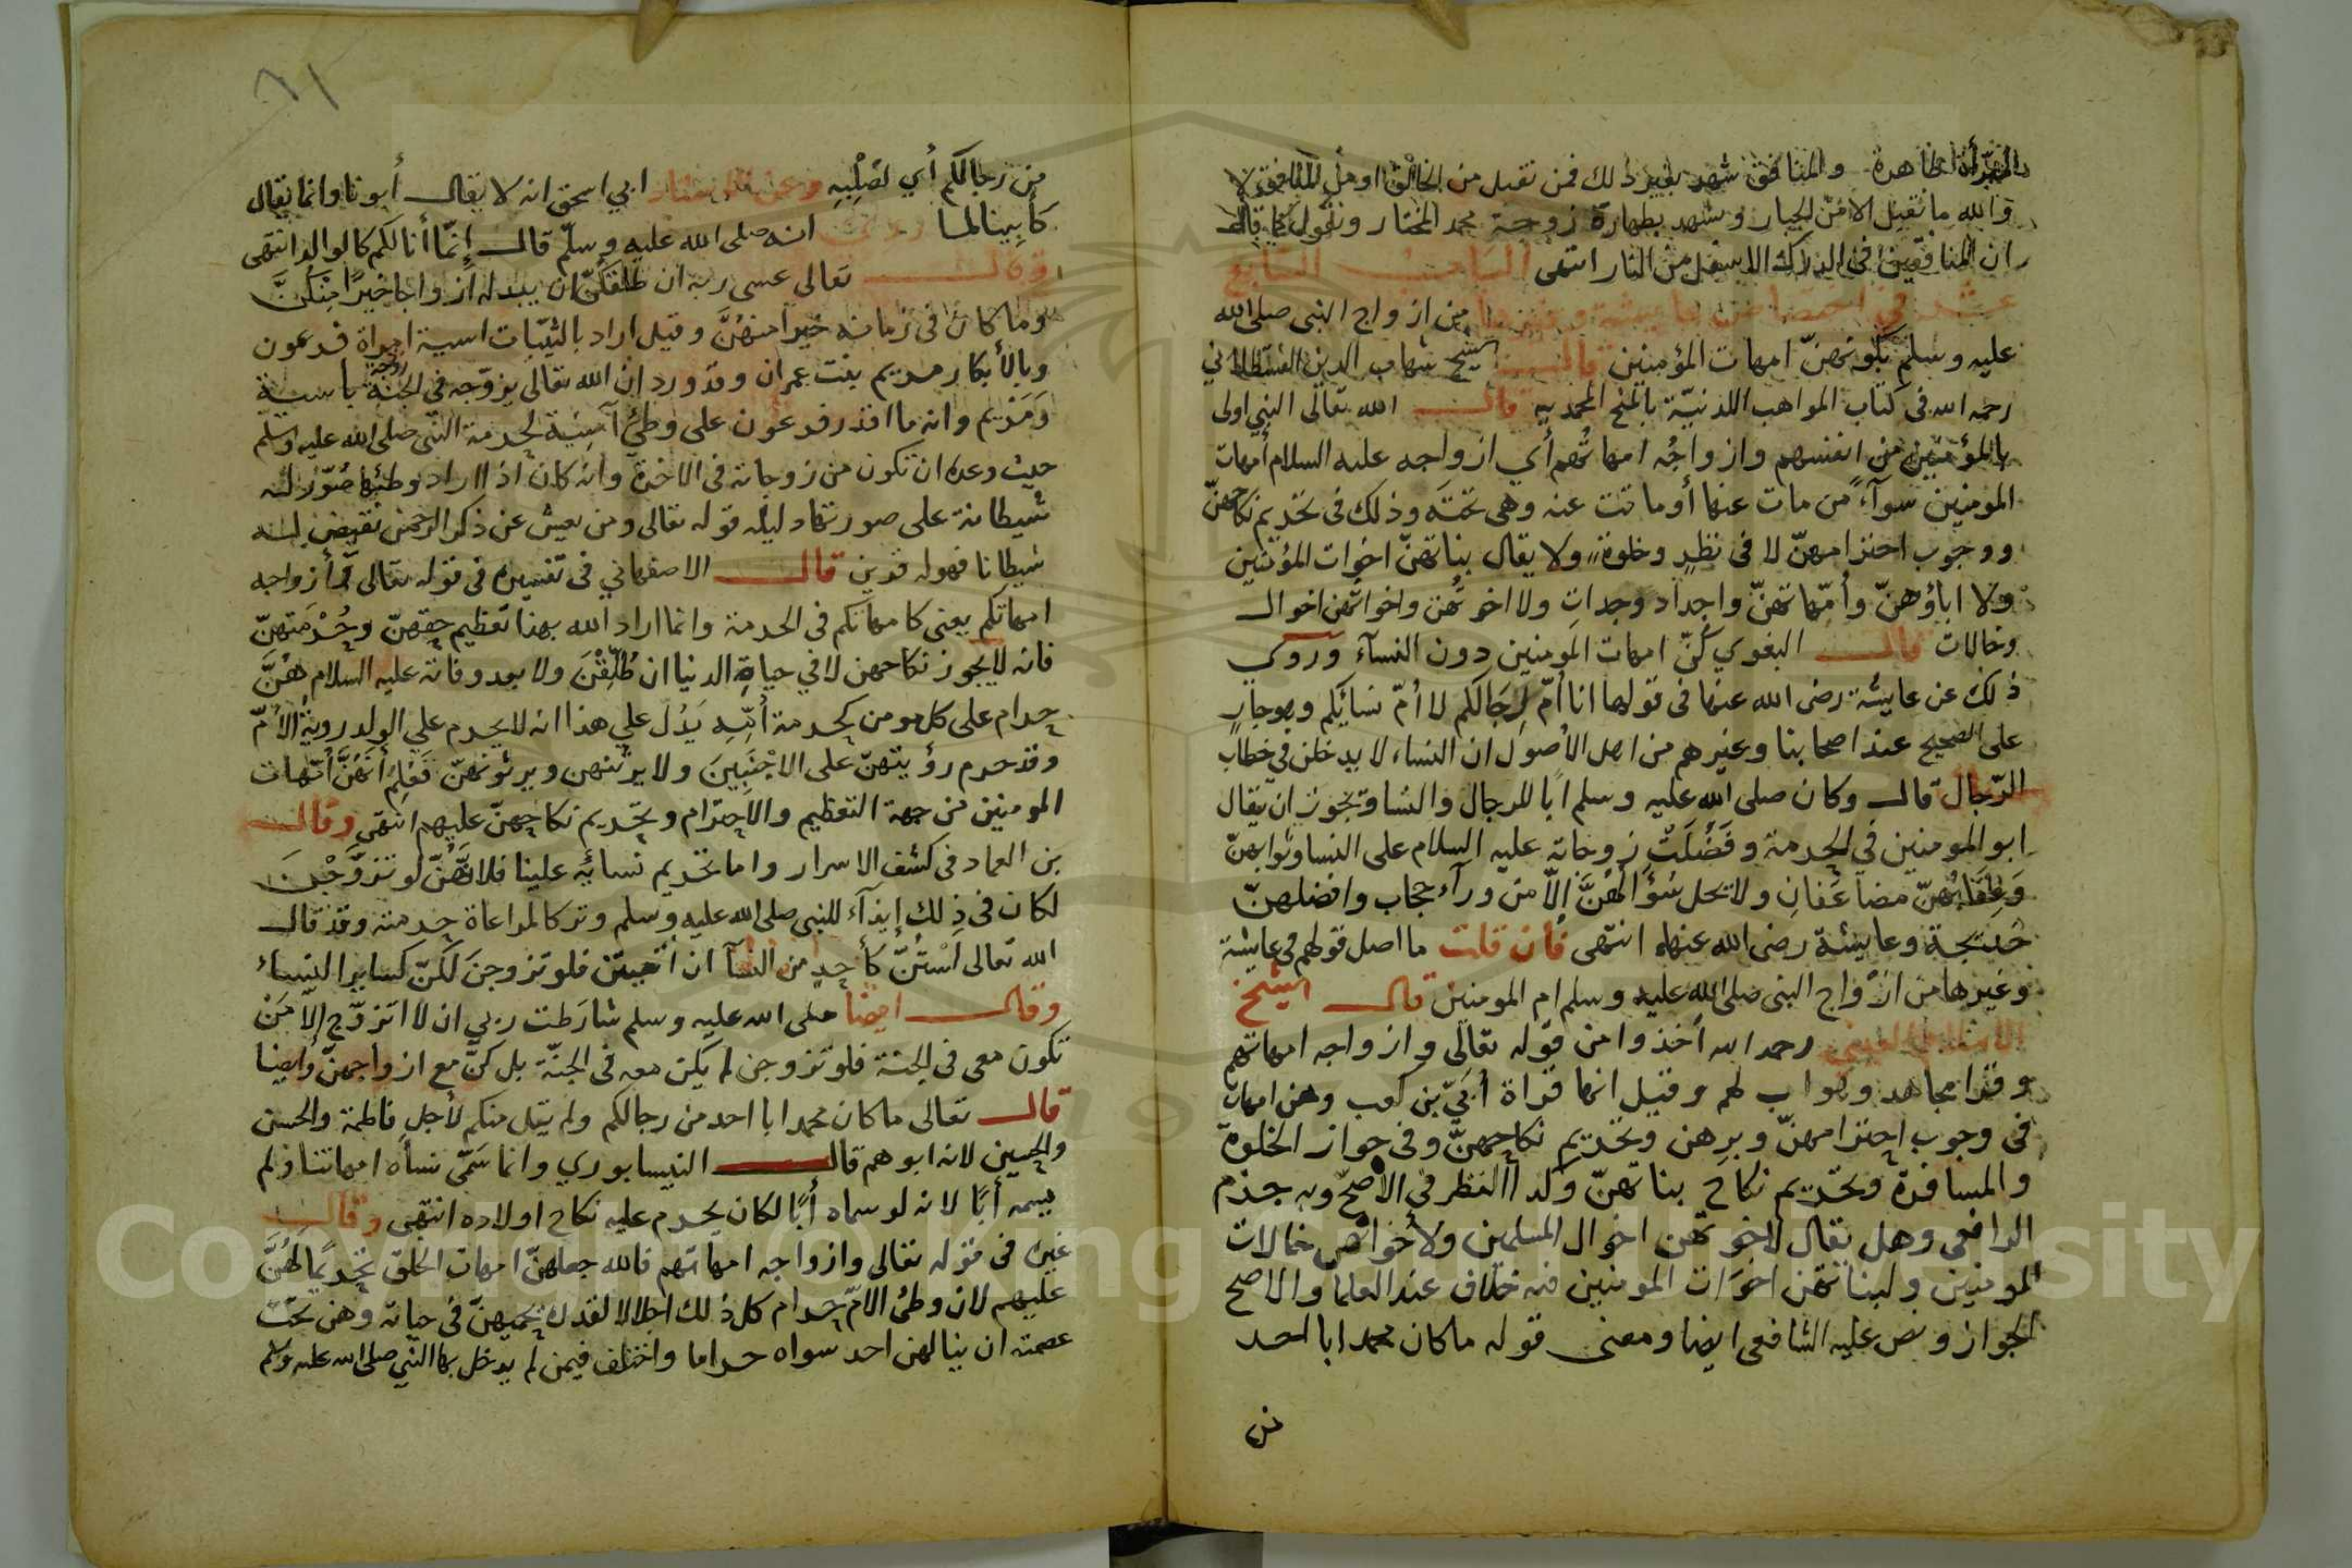 المبرأة الطاهرة والمنافق شهد بغير ذلك فمن تقبل من الخالق او من المنافق لا
والله ما نقبل الا من الجبار وشهد بطهارة زوجة محمد المختار ونقول كما قال
ان المنافقين في الدرك الاسفل من النار انتهى الباحث السابع
عشر في اختصاص عايشة وغيرها من ازواج النبي صلى الله
عليه وسلم بكونهنّ امهات المؤمنين قال الشيخ شهاب الدين القسطلاني
رحمه الله في كتاب المواهب اللدنيّة بالمنح المحمديه قال الله تعالى النبي اولى
بالمؤمنين من انفسهم وازواجُه امهاتُهم أي ازواجه عليه السلام أمهات
المومنين سوآءً من مات عنها أو ماتت عنه وهي تحتَه وذلك في تحريم نكاحهنّ
ووجوب احترامهنّ لا في نظرٍ وخلوة ولا يقال بناتهنّ اخوات المؤمنين
ولا اباؤهنّ وأمّهاتهنّ واجداد وجدات ولا اخوتُهن واخواتُهن اخوال
وخالات قال البغوي كُنّ امهات المومنين دون النسآء وروي
ذلك عن عايشة رضى الله عنها في قولها انا أمّ رجالكم لا أمّ نسائكم وهو جار
على الصحيح عند اصحابنا وغيرهم من اهل الأصول ان النساء لا يدخلن في خطاب
الرّجال قال وكان صلى الله عليه وسلم ابًا للرجال والنسا ويجوز ان يقال
ابو المومنين في الحرمة وفُضِّلَت زوجاته عليه السلام على النسا وثوابهنّ
وَعِقَابُهنّ مضاعَفانِ ولا يحل سُؤالهُنَّ إلّا من ورآء حجاب وافضلهنّ
خديجة وعايشة رضى الله عنها انتهى فان قلت ما اصل قولهم في عايشة
وغيرها من ازواج النبى صلى الله عليه وسلم ام المومنين قال الشيخ
رحمه الله أخذوا من قوله تعالى وازواجه امهاتهم
وقرا مجاهد وهو اب لهم وقيل انها قراة أُبَيّ بن كعب وهن امهات
في وجوب احترامهنّ وبرهن وتحريم نكاحهنّ وفي جواز الخلوة
والمسافرة وتحريم نكاح بناتهنّ وكذا النظر في الاصحّ وبه جزم
الرافعي وهل يقال لاخوتهن اخوال المسلمين ولأخواتهن خالات
المومنين ولبناتهن اخوَات المومنين فيه خلاف عند العلما والاصح
الجواز ونص عليه الشافعي ايضا ومعنى قوله ما كان محمد ابا احد
من
٦١
من رجالكم أي لصُلْبِهِ وعن ابي اسحق انه لا يقال أبونا وانما يقال
كأبينا لما روي انه صلى الله عليه وسلّم قال إنّما أنا لكم كالوالد انتهى
وقال تعالى عسى ربه ان طلقكنّ ان يبدله أزواجا خيرًا منكنَّ
وما كان في زمانه خيرا منهُنَّ وقيل اراد بالثيّبات اسية امراة فرعون
وبالأبكار مريم بنت عمران وقد ورد ان الله تعالى يزوّجه في الجنّة باسية
وَمَرْيم وانه ما اقدر فرعون على وطئ آسِيَة لحرمة النّبي صلى الله عليه وسلم
حيث وعده ان تكون من زوجاته في الاخرة وانه كان اذا اراد وطئها صُوّر له
شيطانة على صورتها دليله قوله تعالى ومن يعش عن ذكر الرحمن نقيض له
شيطانا فهو له قرين قال الاصفهاني في تفسيره في قوله تعالى وأزواجه
امهاتكم يعني كامهاتكم في الحرمة وانما اراد الله بهذا تعظيم حقهنّ وحُرْمَتهنّ
فانه لا يجوز نكاحهن لا في حياةِ الدنيا ان طُلِّقْنَ ولا بعد وفاته عليه السلام هُنَّ
حرام على كل مومن كحرمة أُمّهِ يَدُل على هذا انه لا يحرم على الولد رويةُ الأمّ
وقد حرم رؤيتهنّ على الاجْنَبِيينَ ولا يرثنهن ويرثونهنّ فَعُلِمَ أنَهُنَّ أمّهات
المومنين من جهة التعظيم والاحترام وتحريم نكاحهنّ عليهم انتهى وقال
بن العماد في كشف الاسرار واما تحريم نسائِه علينا فلانَّهُنّ لو تزوَّجْن
لكان في ذلك إيذآء للنبي صلى الله عليه وسلم وتركا لمراعاة حرمته وقد قال
الله تعالى لَسْتُنّ كأحدٍ من النسآ ان اتقيتن فلو تزوجنَ لكنّ كساير النساء
وقال ايضا صلى الله عليه وسلم شارَطت ربي ان لا اتزوّج إلّا مَنْ
تكون معى في الجنة فلو تزوجن لم يكن معه في الجنّة بل كنّ مع ازواجهنّ وايضا
قال تعالى ما كان محمد ابا احد من رجالكم ولم يقل منكم لأجلِ فاطمة والحسن
والحسين لانه ابوهم قال النيسابوري وانما سَمّى نساه امهاتنا ولم
يسمه أبًا لانه لو سماه أبًا لكان يحرم عليه نكاح اولاده انتهى وقال
غيره في قوله تعالى وازواجه امهاتهم فالله جعلهنّ امهات الخلق تحريمًا لهُنَّ
عليهم لان وطئ الأمّ حرام كل ذلك اجلالا لقدره يحميهنّ في حياته وهن تحت
عصمته ان ينالهن احد سواه حراما واختلف فيمن لم يدخل بها النبي صلى الله عليه وسلم